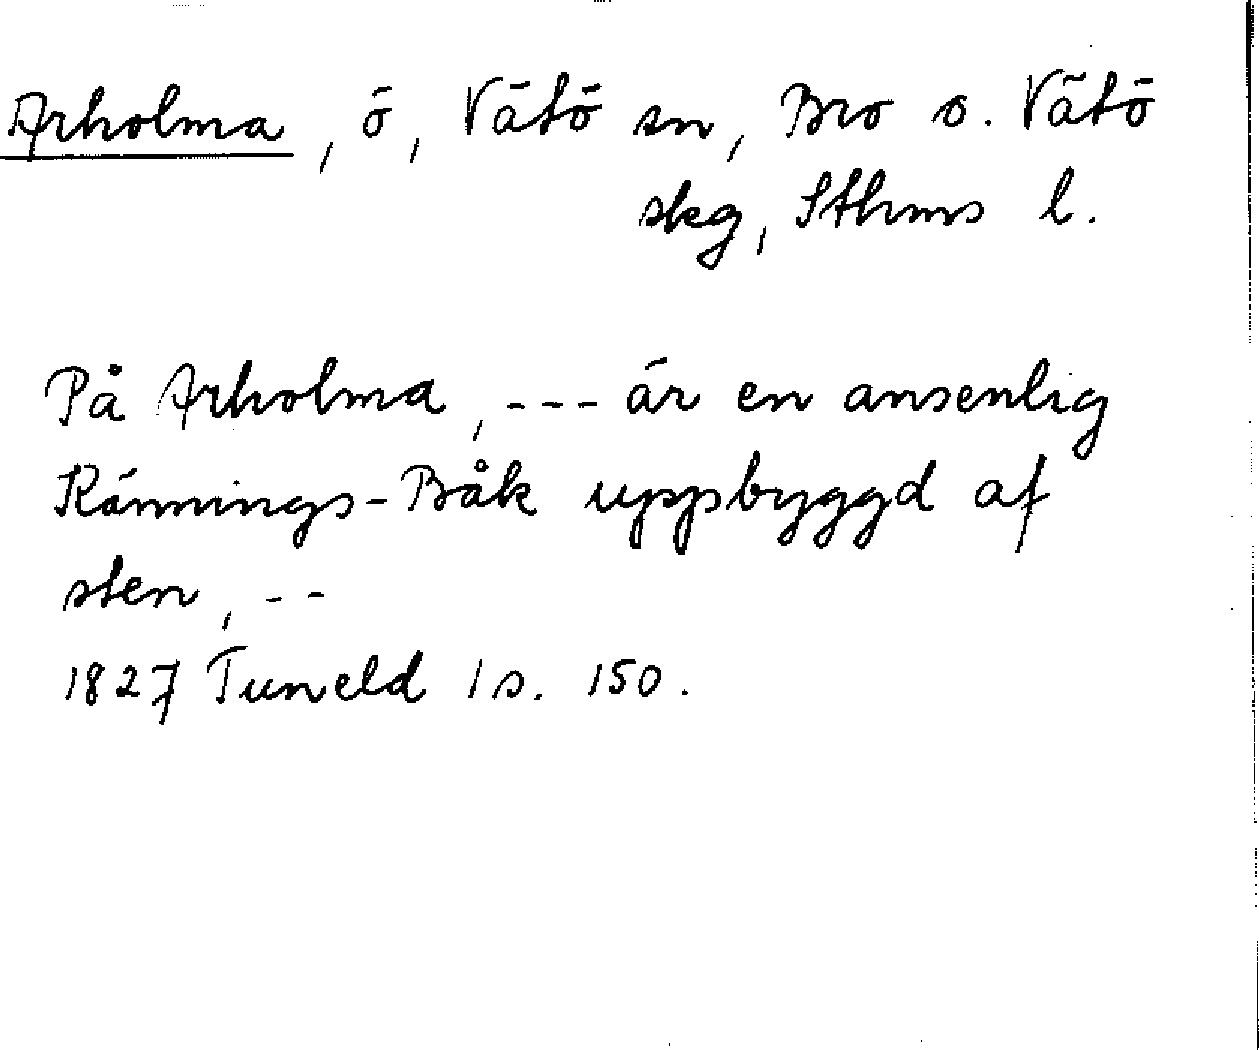 Arholma, ö, Vätö sn, Bro o. Vätö
skg, Sthms l.
På Arholma, --- är en ansenlig
Kännings-Båk uppbyggd af
sten, --
1827 Tuneld 1 s. 150.